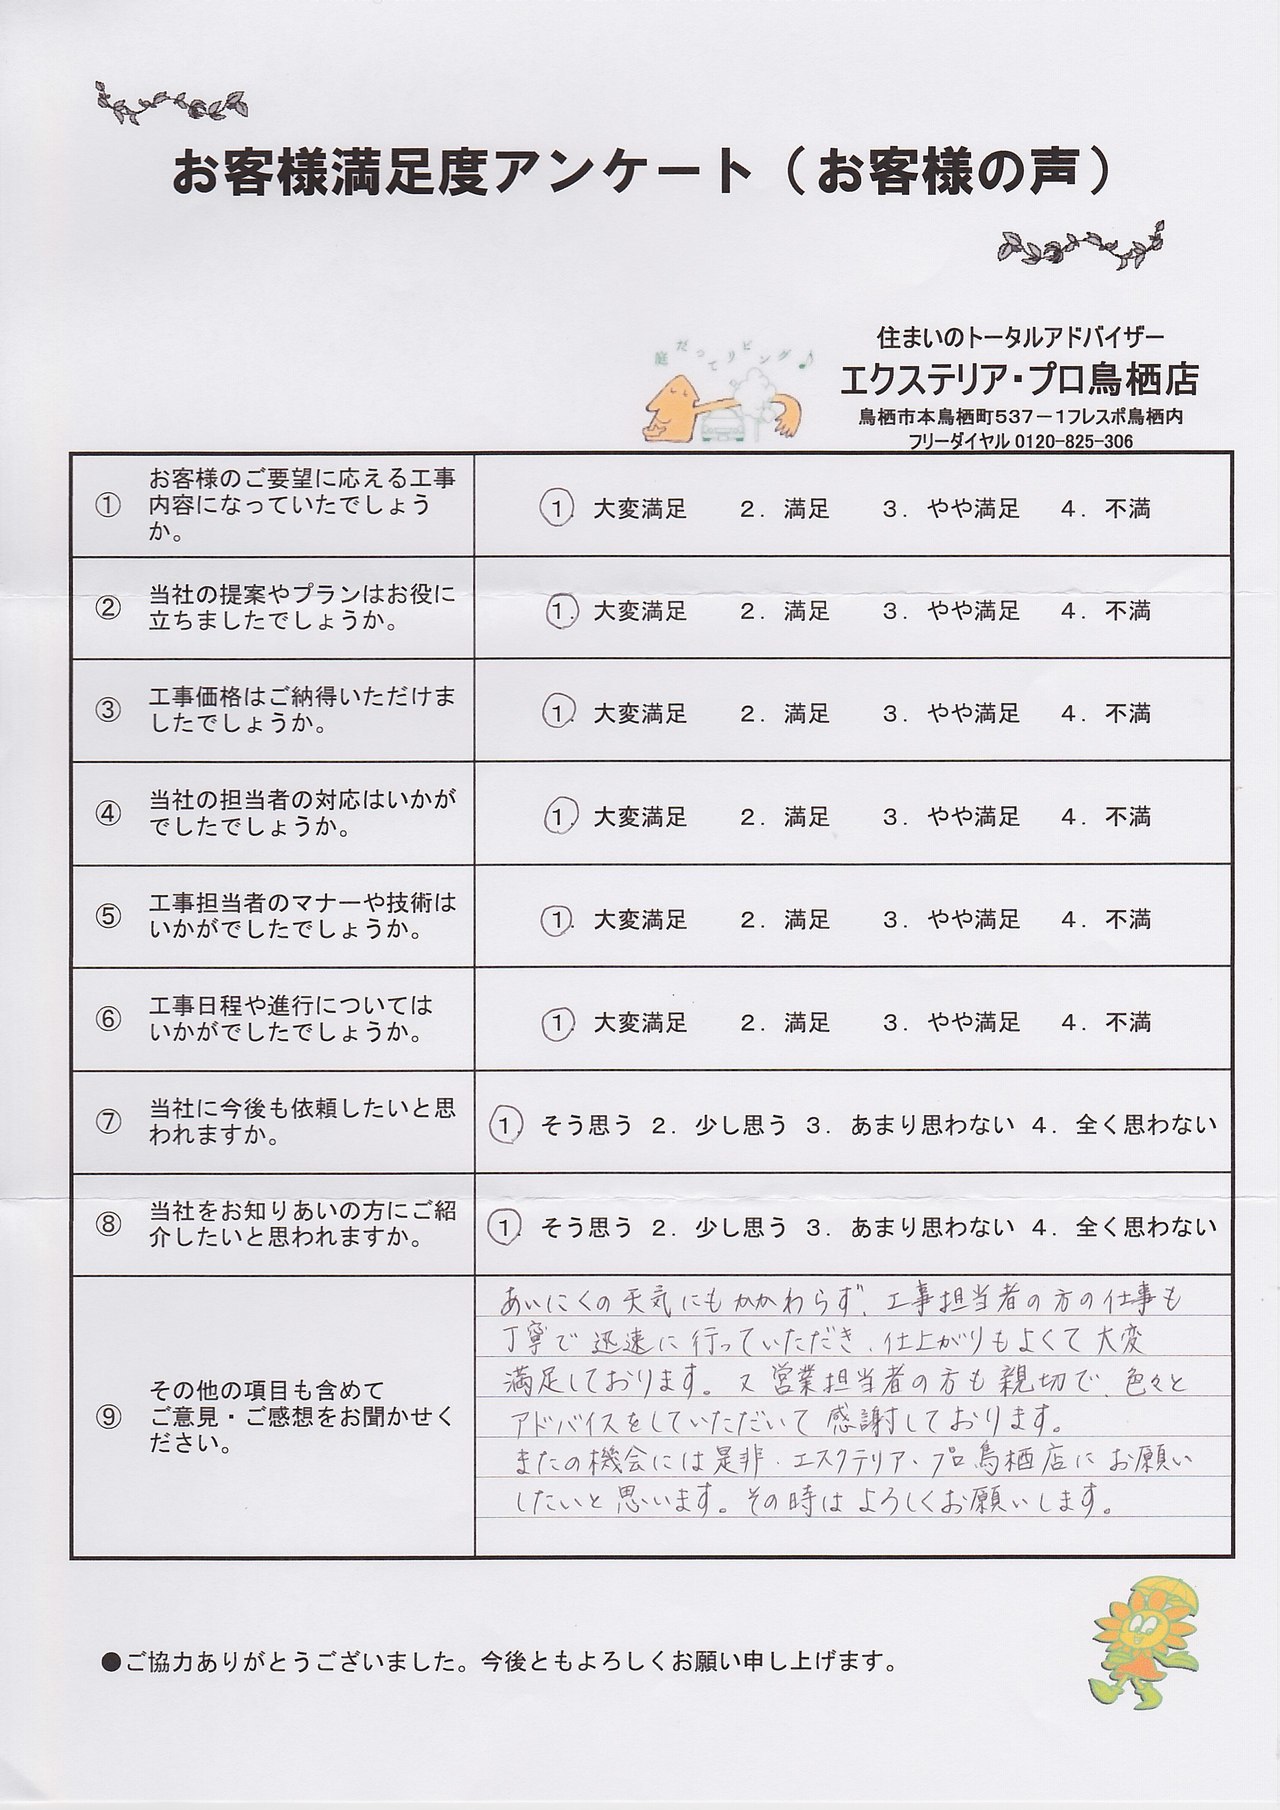 お客様満足度アンケート（お客様の声）
庭だってリビング♪
住まいのトータルアドバイザー
エクステリア・プロ鳥栖店
鳥栖市本鳥栖町537－1フレスポ鳥栖内
フリーダイヤル 0120-825-306
① お客様のご要望に応える工事
内容になっていたでしょう
か。
1. 大変満足 2. 満足 3. やや満足 4. 不満
② 当社の提案やプランはお役に
立ちましたでしょうか。
1. 大変満足 2. 満足 3. やや満足 4. 不満
③ 工事価格はご納得いただけま
したでしょうか。
1. 大変満足 2. 満足 3. やや満足 4. 不満
④ 当社の担当者の対応はいかが
でしたでしょうか。
1. 大変満足 2. 満足 3. やや満足 4. 不満
⑤ 工事担当者のマナーや技術は
いかがでしたでしょうか。
1. 大変満足 2. 満足 3. やや満足 4. 不満
⑥ 工事日程や進行については
いかがでしたでしょうか。
1. 大変満足 2. 満足 3. やや満足 4. 不満
⑦ 当社に今後も依頼したいと思
われますか。
1. そう思う 2. 少し思う 3. あまり思わない 4. 全く思わない
⑧ 当社をお知りあいの方にご紹
介したいと思われますか。
1. そう思う 2. 少し思う 3. あまり思わない 4. 全く思わない
⑨ その他の項目も含めて
ご意見・ご感想をお聞かせく
ださい。
あいにくの天気にもかかわらず、工事担当者の方の仕事も
丁寧で迅速に行っていただき、仕上がりもよくて大変
満足しております。又営業担当者の方も親切で、色々と
アドバイスをしていただいて感謝しております。
またの機会には是非、エスクテリア・プロ鳥栖店にお願い
したいと思います。その時はよろしくお願いします。
●ご協力ありがとうございました。今後ともよろしくお願い申し上げます。